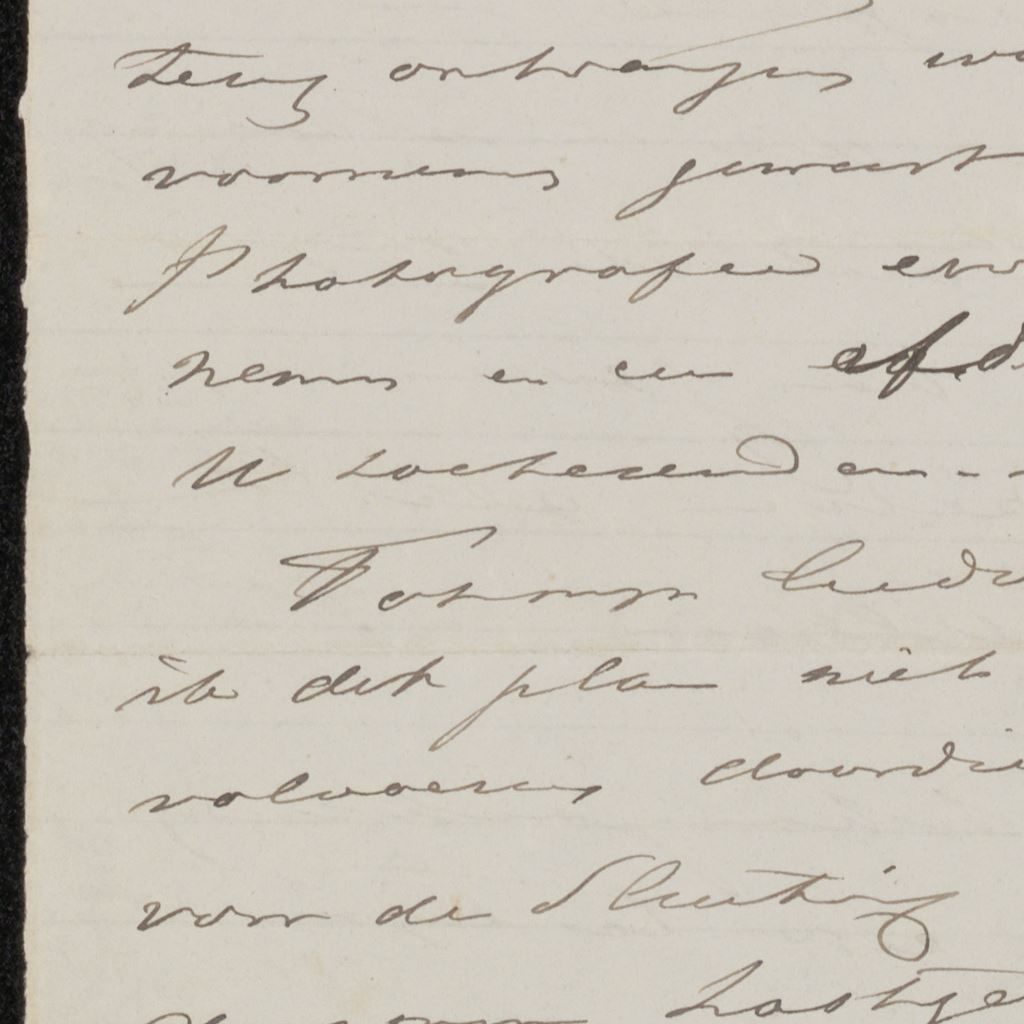 terug ontvangen
voornemens geweest
Photografiën
nemen en een afd
U toetezenden -
Tot mijn
ik dit plan niet
volvoeren
voor de Sluiting